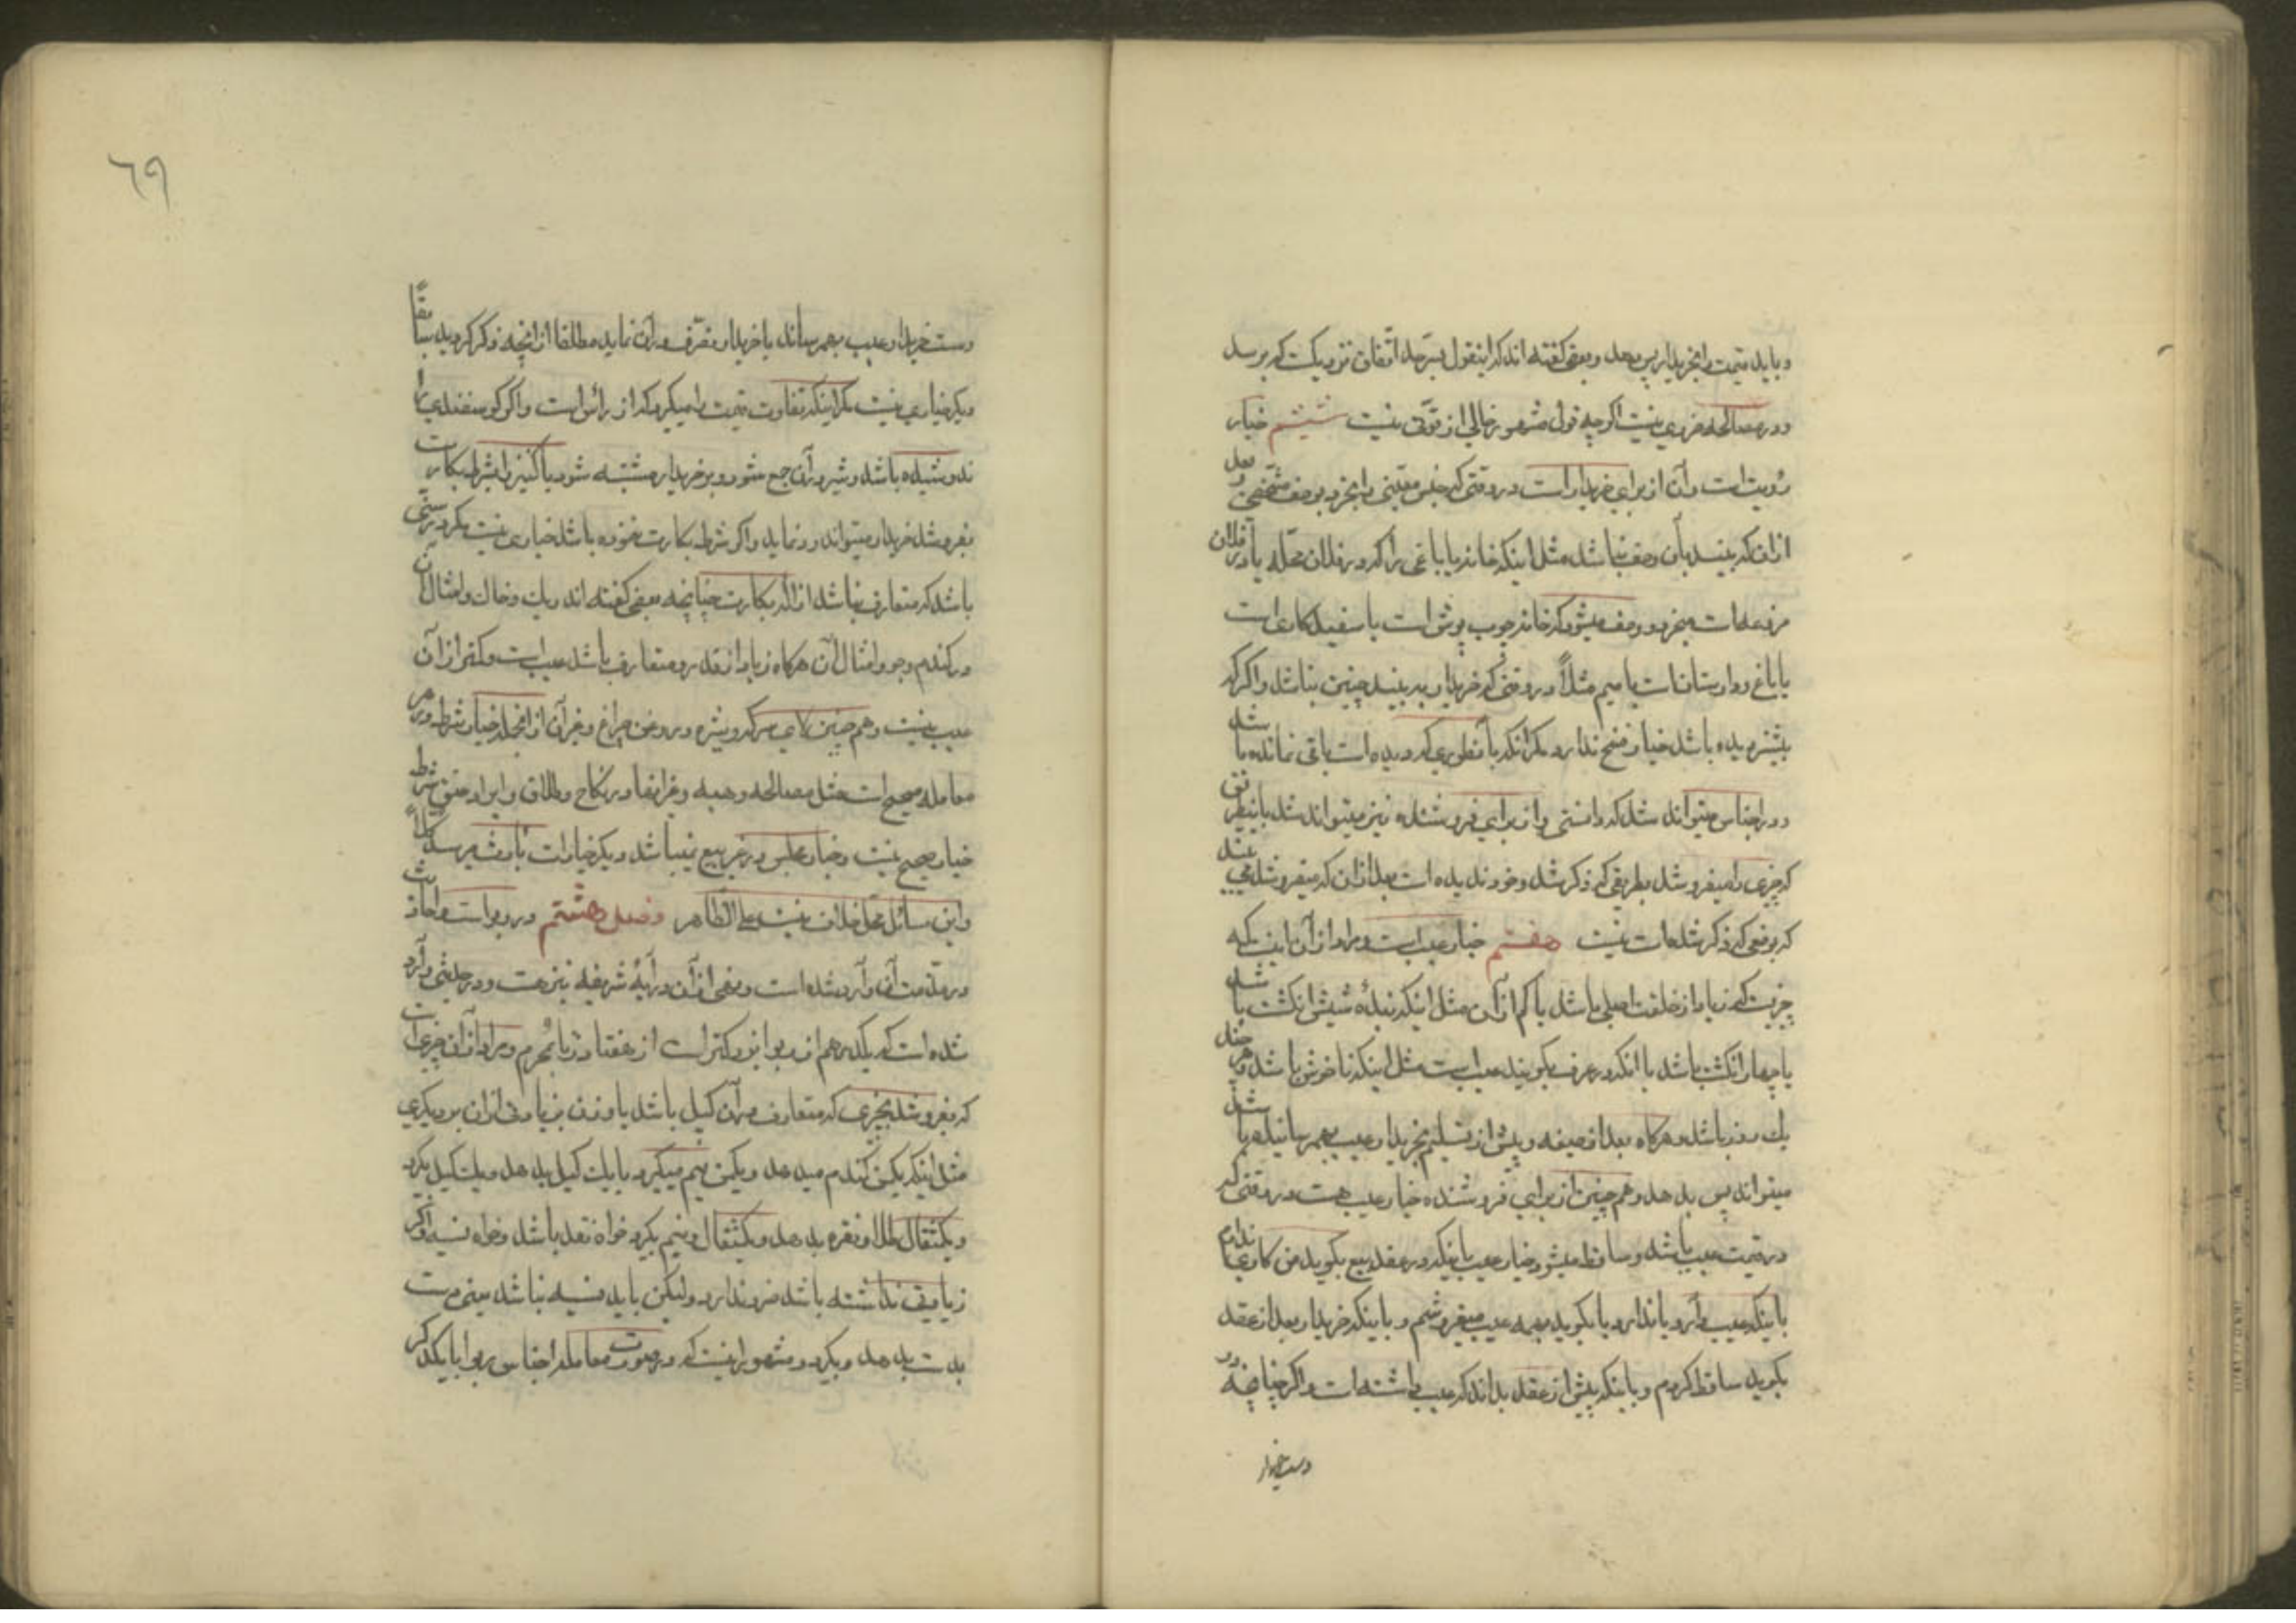 و باید قیمت را بخریدار پس بدهد و بعضی گفته‌اند که اینقول بسرحد اتفاق نزدیکست که برسد
و در مصالحه ضروری نیست اگرچه قول مشهور خالی از قوتی نیست ششم خیار
رؤیت است و آن از برای خریدار است در وقتی که جنس معینی را بخرد بوصف مشخصی و بعد
از آن که ببیند بآن وصف نباشد مثل اینکه خانه یا باغی را که در فلان محله یا در فلان
مزرعه است میخرد و وصف میشود که خانه چوب پوش است یا سفیدکاری است
یا باغ دوارستان است یا سیم مثلاً در وقتی که خریدار به بیند چنین نباشد و اگر که
بیشتر دیده باشد خیار فسخ ندارد مگر آنکه بآنطوری که دیده است باقی نمانده باشد
و در اجناس میتواند شد که دانستی و از برای فروشنده نیز میتواند شد باینطریق
که چیزی را میفروشد بطریقی که ذکر شد و خود ندیده است بعد از آن که میفروشد می بیند
که بوضعی که ذکر شده است نیست هفتم خیار عیب است و مراد از آن اینست که
چیزیست که زیاد از خلقت اصلی باشد یا کم از آن مثل اینکه بندهٔ شیش انکشت باشد
یا چهار انکشت باشد یا آنکه در عرف بگویند عیب است مثل اینکه ناخوش باشد هر چند
یک روز باشد و هرگاه بعد از صیغه و پیش از تسلیم بخریدار عیب بهم رساند هم باشد
میتواند پس بدهد و هم چنین از برای فروشنده خیار عیب هست در وقتی که
در قیمت عیب باشد و ساقط میشود خیار عیب باینکه در عقد بیع بگوید من کاری ندارم
باینکه عیب دارد یا ندارد یا بگوید بهمه عیب میفروشم و باینکه خریدار بعد از عقد
بگوید ساقط کردم و باینکه پیش از عقد بداند که عیب داشته است و اگر چنانچه در
دست خریدار
٦٩
دست خریدار عیب بهم رساند یا خریدار تصرف در آن نماید مطلقا از آنچه ذکر کردید سابقاً
دیگر خیاری نیست مگر اینکه تفاوت قیمت را میگیرد که از رائس است و اگر گوسفندی را
ندوشیده باشد و شیر در آن جمع شود و بر خریدار مشتبه شود یا کنیز را بشرط بکارت
بفروشد خریدار میتواند رد نماید و اگر شرط بکارت نموده باشد خیاری نیست مگر در سنی
باشد که متعارف نباشد ازاله بکارت چنانچه بعضی گفته‌اند ریک و خاک و امثال آن
در کندم و جو و امثال آن هرگاه زیاد از قدر متعارف باشد عیب است و کمتر از آن
عیب نیست و هم چنین لای سرکه و شیره و روغن چراغ و غیر آن از آنجمله خیار شرط در هر
معامله صحیح است مثل مصالحه و هبه و غیر اینها و در نکاح و طلاق و ابراء و عتق شرط
خیار صحیح نیست و خیار مجلس در غیر بیع نمیباشد و دیگر خیارات بارث میرسد کلاً
و این مسائل محل خلاف نیست علی الظاهر فصل هشتم در ربواست و احادیث
در مذمت آن وارد شده است و نهی از آن در آیهٔ شریفه نیز هست و در حدیثی وارد
شده است که یکدرهم از ربوا بزرگتر است از هفتاد زنا بمحرم و مراد از آن چیزی است
که بفروشد بچیزی که متعارف در آن کیل باشد یا وزن بزیادتی از آن بر دیگری
مثل اینکه یکمن کندم میدهد و یکمن نیم میگیرد یا یک کیل بدهد و یک کیل بگیرد
و یکمثقال طلا و نقره بدهد و یکمثقال و نیم بگیرد خواه نقد باشد و خواه نسیه و اگر
زیادتی نداشته باشد ضرر ندارد و لیکن باید نسیه نباشد یعنی دست
بدست بدهد و بگیرد و مشهور اینست که در صورت معامله اجناس ربوا با یکدیگر